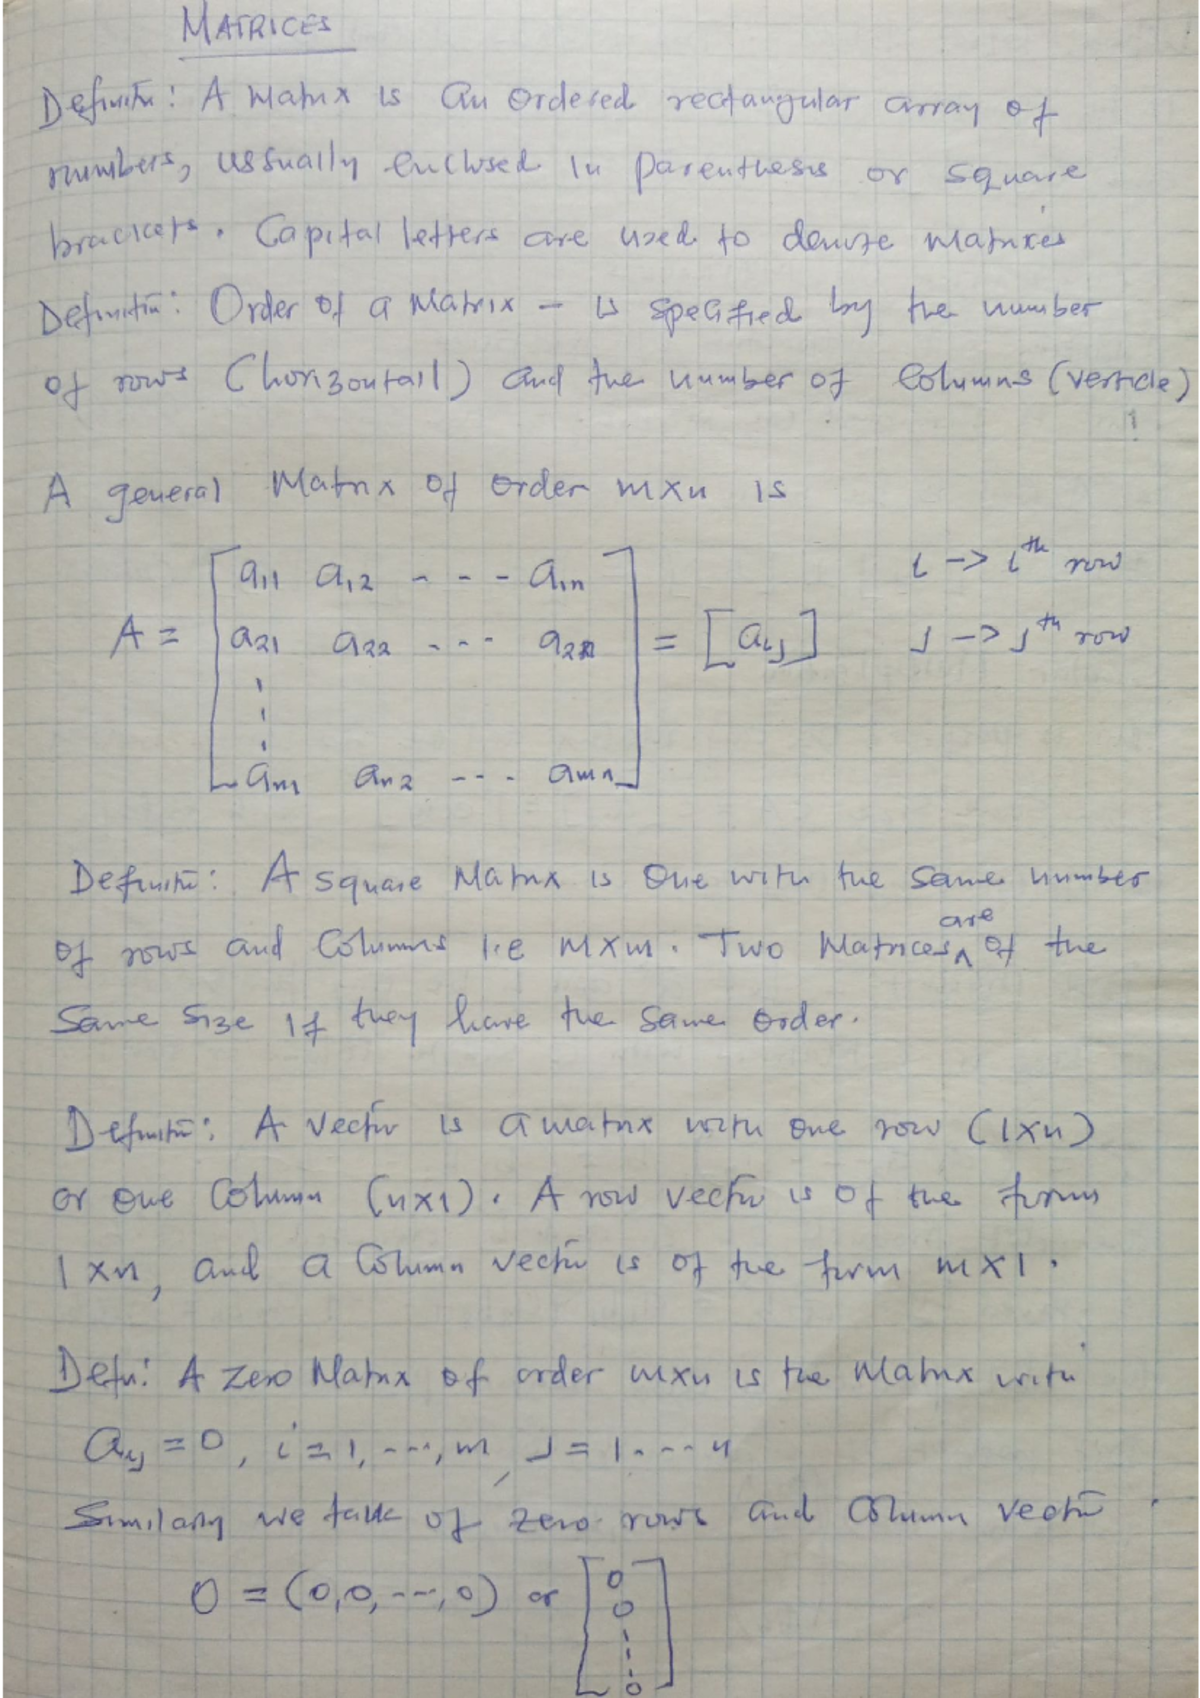 MATRICES
Definitn: A Matrix is an ordered rectangular array of
numbers, ussually enclosed in parenthesis or square
brackets. Capital letters are used to denote matrixes
Definitin: Order of a Matrix - is specified by the number
of rows (horizontall) and the number of columns (verticle)
A general Matrix of order m×n is
A = [ a11 a12 - - - a1n
a21 a22 - - - a2n
⋮
am1 an2 - - - amn ] = [aij]
i -> i^th row
j -> j^th row
Definitn: A square Matrix is one with the same number
of rows and columns i.e m×m. Two Matrices are of the
same size if they have the same order.
Definitn: A vector is a matrix with one row (1×n)
or one column (n×1). A row vector is of the form
1×n, and a column vector is of the form m×1.
Defn: A zero Matrix of order m×n is the Matrix with
aij = 0, i=1, ---, m, j=1. --- n
Similarly we talk of zero rows and column vector
0 = (0,0, ---, 0) or [ 0
0
⋮
0 ]